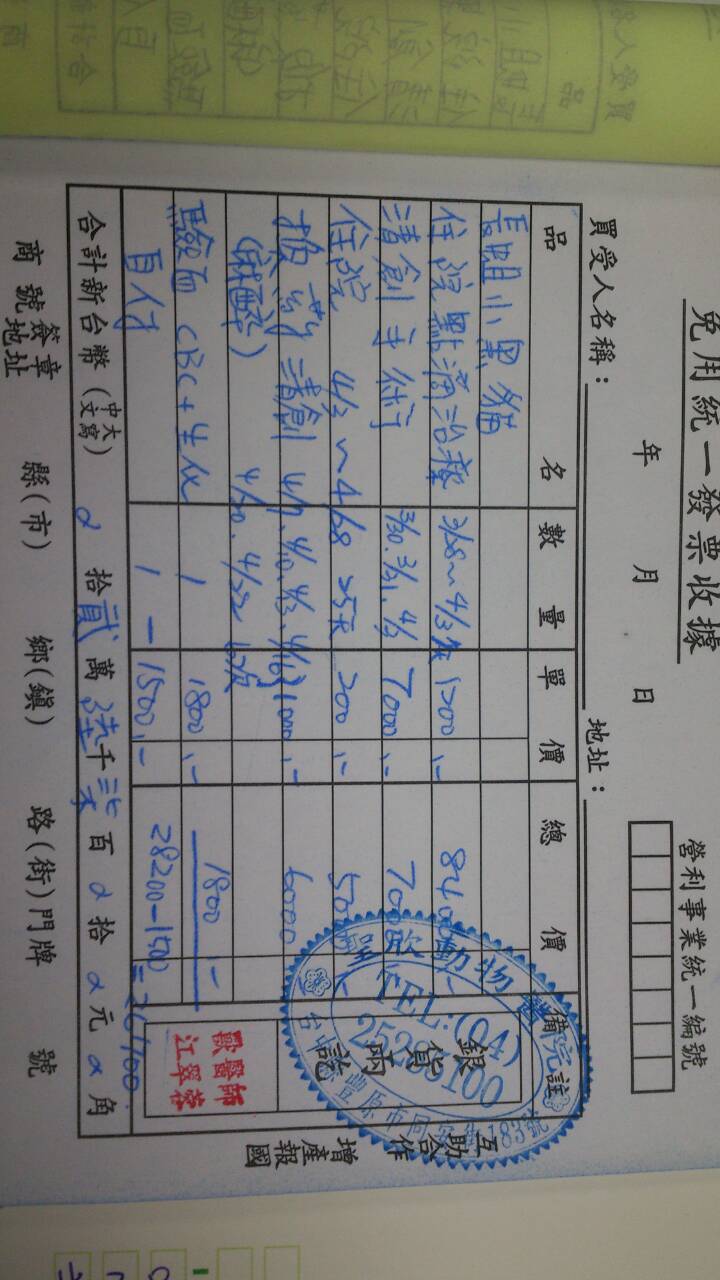 免用統一發票收據
年 月 日
營利事業統一編號
買受人名稱：
地址：
品名 數量 單價 總價 備註
長姐小黑貓
住院點滴治療 3/28~4/3 1200,- 8400,-
清創手術 3/30.3/31.4/3 7000,- 7000
住院 4/3~4/28 25天 200,- 5000
換葯清創 4/7.4/10.4/13.4/16 1000,- 6000
(麻醉) 4/20.4/22 6次
驗血 CBC+生化 1 1800,- 1800,-
自付 1 -1500,- 28200-1500=26700
合計新台幣(中文大寫) 拾貳萬陸千柒百 拾 元 角
商號簽章
地址 縣(市) 鄉(鎮) 路(街)門牌 號
銀貨兩訖
獸醫師
江翠蓉
動物
TEL:(04)
25283100
豐原市
183號
互助合作
增產報國